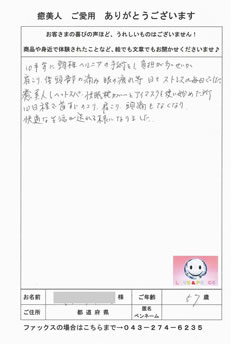 癒美人 ご愛用 ありがとうございます
お客さまの喜びの声ほど、うれしいものはございません！
商品や身近で体験されたことなど、絵でも文章でもお聞かせくださいませ♪
10年前に頸椎ヘルニアの手術をし
肩こり 後頭部の痛み 眼の疲れ等 日々ストレスの毎日でした
癒美人
アイマスクを使い始めた所
10日程で首すじのコリ、肩こり、頭痛もなくなり
快適な生活が送れる様になりました。
お名前 様 ご年齢 57 歳
ご住所 都 道 府 県 匿名 ペンネーム
ファックスの場合はこちらまで→043-274-6235